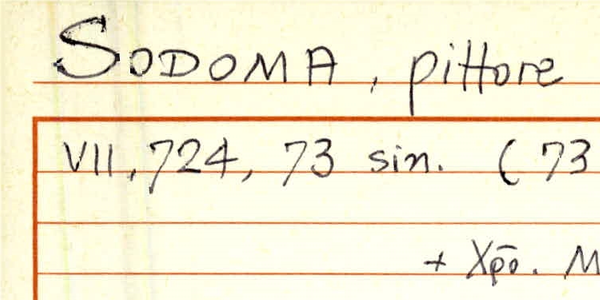 SODOMA, pittore
VII, 724, 73 sin. (73
+ Xpō. M